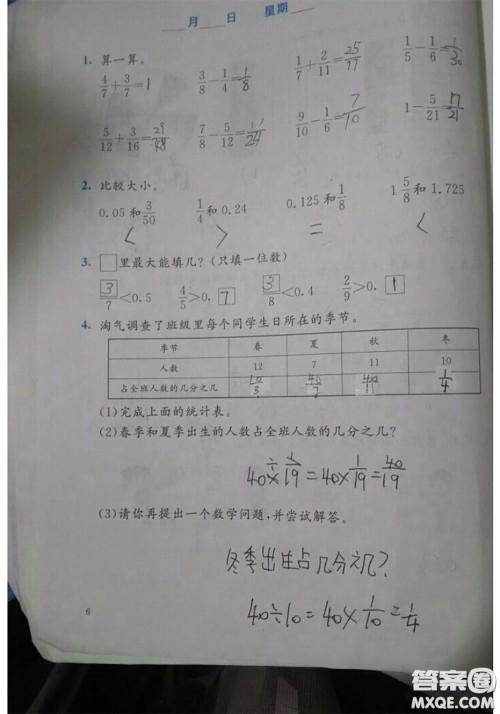 月 日 星期
1. 算一算。
4/7+3/7=1 3/8-1/4=1/8 1/7+2/11=25/77 1/5-1/6=1/30
5/12+3/16=29/48 7/8-5/12=11/24 9/10-1/6= 7/10 1-5/21=17/21
2. 比较大小。
0.05和3/50 1/4和0.24 0.125和1/8 1 5/8和1.725
< > = <
3. □里最大能填几？(只填一位数)
3/7<0.5 4/5>0.7 3/8<0.4 2/9>0.1
4. 淘气调查了班级里每个同学生日所在的季节。
季节 春 夏 秋 冬
人数 12 7 11 10
占全班人数的几分之几 10/3 40/7 40/11 1/4
(1)完成上面的统计表。
(2)春季和夏季出生的人数占全班人数的几分之几？
=40×1/19=40/19
(3)请你再提出一个数学问题,并尝试解答。
冬季出生占几分之几?
40÷10=40×1/10=1/4
6
答案圈
MXQE.COM